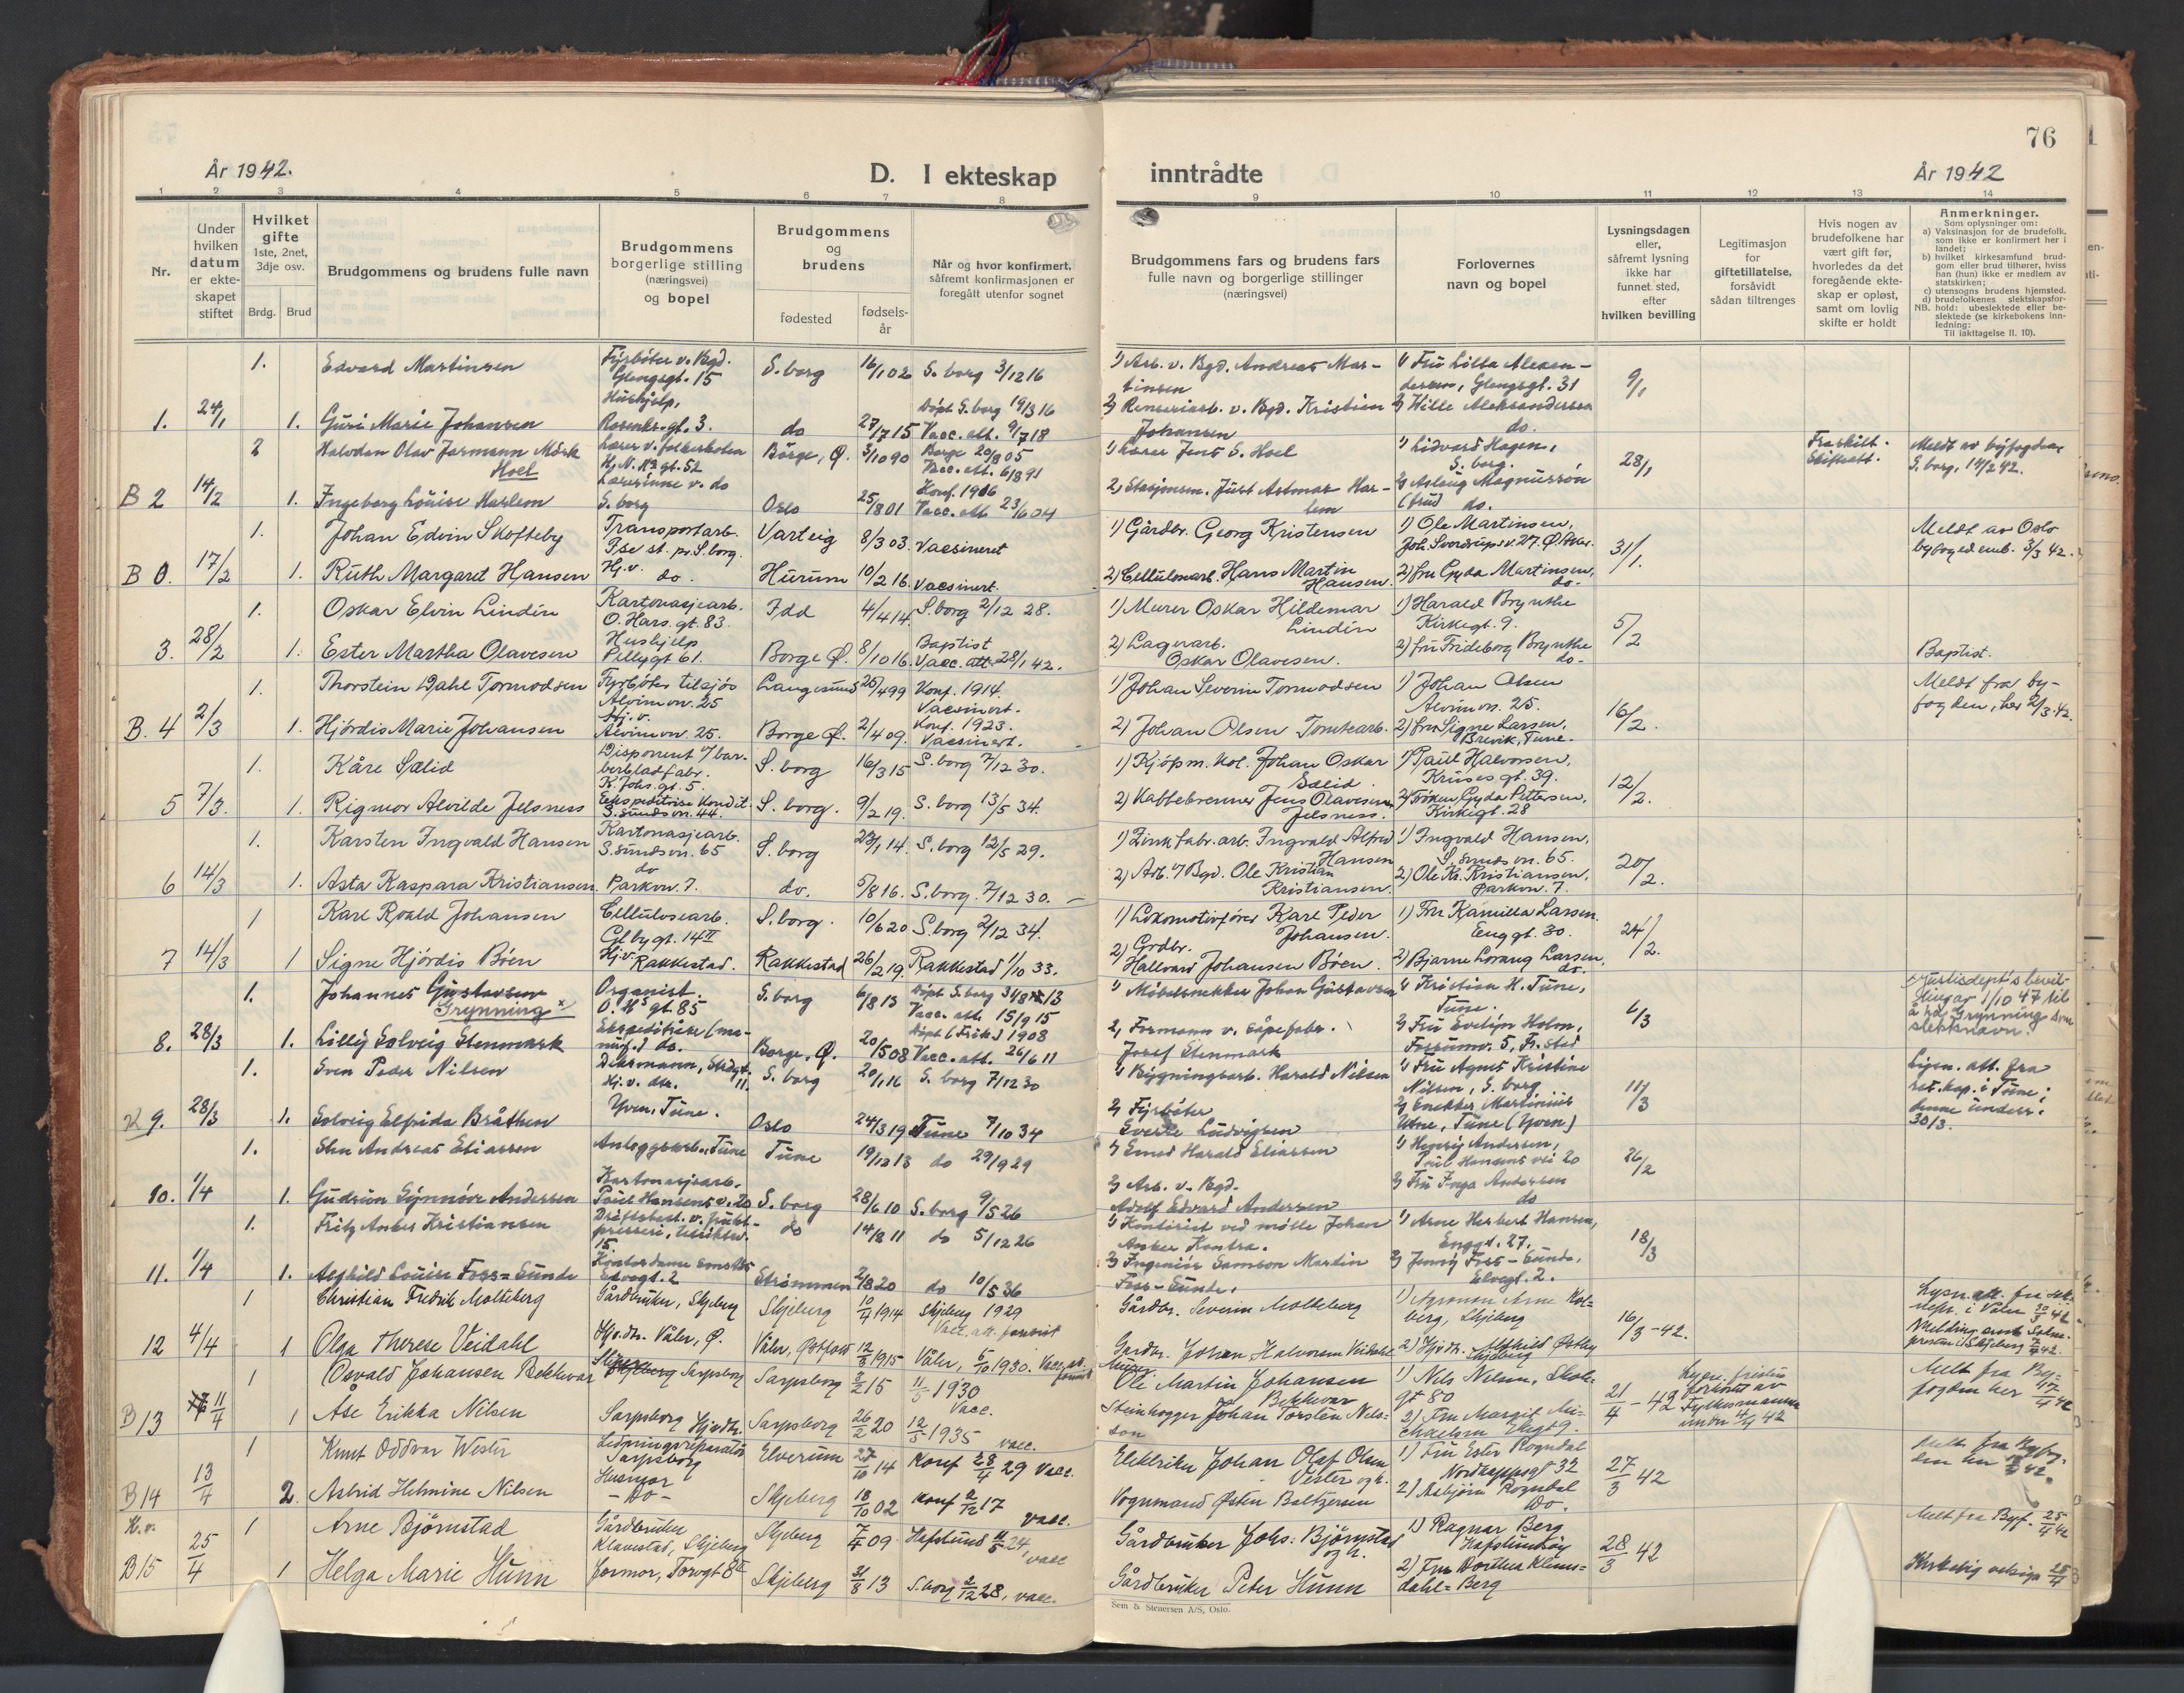 76
År 1942.
D. I ekteskap inntrådte
År 1942
1 2 3 4 5 6 7 8 9 10 11 12 13 14
Nr.
Under hvilken datum er ekteskapet stiftet
Hvilket gifte 1ste, 2net, 3dje osv.
Brdg. Brud
Brudgommens og brudens fulle navn
Brudgommens borgerlige stilling (næringsvei) og bopel
Brudgommens og brudens
fødested
fødselsår
Når og hvor konfirmert, såfremt konfirmasjonen er foregått utenfor sognet
Brudgommens fars og brudens fars fulle navn og borgerlige stillinger (næringsvei)
Forlovernes navn og bopel
Lysningsdagen eller, såfremt lysning ikke har funnet sted, efter hvilken bevilling
Legitimasjon for giftetillatelse, forsåvidt sådan tiltrenges
Hvis nogen av brudefolkene har vært gift før, hvorledes da det foregående ekteskap er opløst, samt om lovlig skifte er holdt
Anmerkninger.
Som oplysninger om:
a) Vaksinasjon for de brudefolk, som ikke er konfirmert her i landet;
b) hvilket kirkesamfund brudgom eller brud tilhører, hviss han (hun) ikke er medlem av statskirken;
c) utensogns brudens hjemsted.
d) brudefolkenes slektskapsforhold: ubeslektede eller beslektede (se kirkebokens innledning:
NB. Til iakttagelse II. 10).
1. Edvard Martinsen Fyrbøter v. Bgd. Glengsgt. 15 S.borg 16/1 02 S.borg 3/12 16 1) Arb. v. Bgd. Andreas Martinsen 1) Fru Lilla Aleksandersen, Glengsgt. 31 9/1
1. 24/1 1. Guri Marie Johansen Hushjelp, Rosenkr.gt. 3. do 27/7 15 Døpt S.borg 19/3 16 Vacc. att. 9/7 18 2) Renseriarb. v. Bgd. Kristian Johansen 2) Hille Aleksandersen do.
2 Halvdan Olav Jarmann Mörk Hoel Lærer v. folkeskolen Börge, Ø. 3/10 90 Borge 20/8 05 Vacc. att. 6/8 91 1) Lærer Jens S. Hoel 1) Lidvard Hagen, S.borg. 28/1 Fraskilt. Skifteatt. Meldt av byfogden S.borg, 14/2 42.
B 2 14/2 1. Ingeborg Louise Harlem Lærerinne v. do S.borg Oslo 25/8 01 Konf. 1916 Vacc. att 23/6 04 2) Stasjonsm. Just Astmar Harlem 2) Aslaug Magnussön (fru) do.
1. Johan Edvin Skofteby Transportarb. Ise st. pr. S.borg. Varteig 8/3 03. Vacsineret 1) Gårdbr. Georg Kristensen 1) Ole Martinsen, Joh. Sverdrups v. 27. Ø. Aker. 31/1. Meldt av Oslo byfogdemb. 3/3 42.
B 0. 17/2 1. Ruth Margaret Hansen Hj.v. do. Hurum 10/2 16. Vacsinert. 2) Cellulosearb. Hans Martin Hansen. 2) fru Gyda Martinsen, do.
1. Oskar Elvin Lindén Kartonasjearb. O. Hars. gt. 83. Idd 4/4 14. S.borg 2/12 28. 1) Murer Oskar Hildemar Lindén 1) Harald Brynthe Kirkegt. 9. 5/2
3. 28/2 1. Ester Martha Olavesen Hushjelp Pellygt 61. Borge Ø. 8/10 16. Baptist Vacc. att. 28/1 42. 2) Lagerarb. Oskar Olavesen. 2) fru Frideborg Brynthe do. Baptist.
1. Thorstein Dahl Tormodsen Fyrbøter tilsjøs Alvimvn. 25 Langesund 25/4 99 Konf. 1914. Vacsinert. 1) Johan Severin Tormodsen 1) Johan Olsen Alvimvn. 25. 16/2. Meldt fra byfogden, her 2/3 42.
B. 4 2/3 1. Hjördis Marie Johansen Hj.v. Alvimvn. 25. Borge Ø. 2/4 09. Konf. 1923. Vacsinert. 2) Johan Olsen Tomtearb. 2) fru Signe Larsen, Brevik, Tune.
1. Kåre Sælid Disponent v/ barberbladfabr. K. Johs. gt. 5. S.borg 16/3 15 S.borg 7/12 30. 1) Kjöpm. Kol. Johan Oskar Sælid. 1) Paul Halvorsen, Kruses gt. 39. 12/2.
5 7/3. 1. Rigmor Alvilde Jelsness Ekspeditrise Kondit. S.sundsvn. 44. S.borg. 9/2 19. S.borg 13/5 34. 2) Kaffebrenner Jens Olavesen Jelsness. 2) Frøken Gyda Pettersen, Kirkegt. 28
1. Karsten Ingvald Hansen Kartonasjearb. S.sundsvn. 65 S.borg 23/1 14. S.borg 12/5 29. 1) Zinkfabr.arb. Ingvald Alfred Hansen 1) Ingvald Hansen, S.sundsvn. 65. 20/2.
6 14/3 1. Asta Kaspara Kristiansen do Parkvn. 7. do. 5/8 16. S.borg. 7/12 30. 2) Arb. v/ Bgd. Ole Kristian Kristiansen. 2) Ole Kr. Kristiansen, Parkvn. 7.
1 Karl Roald Johansen Cellulosearb. Glbygt. 14 II S.borg. 10/6 20 S.borg 2/12 34. 1) Lokomotivfører Karl Peder Johansen. 1) Fru Kamilla Larsen. Enggt. 30. 24/2.
7 14/3 1 Signe Hjördis Böen Hj.v. Rakkestad. Rakkestad 26/2 19. Rakkestad 1/10 33. 2) Grdbr. Hallvard Johansen Böen. 2) Bjarne Lorang Larsen, do.
1. Johannes Gustavsen Grynning x Organist. O. Hs gt. 85 S.borg 6/8 13 Döpt S.borg 13 Vacc. att. 15/9 15 1) Möbelsnekker Johan Gustavsen 1) Kristian H. Tune, Tune. 6/3 x Justisdept's bevilling av 1/10 47 til å ha Grynning som slektsnavn.
8. 28/3 1. Lilly Solveig Stenmark Ekspeditrise (manuf.) do. Borge, Ø. 20/5 08 Döpt (Frik.) 1908 Vacc. att. 26/6 11 2) Formann v. såpefabr. Josef Stenmark 2) Fru Evelyn Holm, Fossumv. 5, Fr.stad
1. Sven Peder Nilsen S.borg 20/1 16 S.borg 7/12 30 1) Bygningsarb. Harald Nilsen 1) Fru Agnes Kristine Nilsen, S.borg 11/3 Lysn. att. fra res. kap. i Tune; denne underr. 30/3.
K 9. 28/3 1. Solveig Elfrida Bråthen Yven, Tune. Oslo 24/3 19 Tune 7/10 34 2) Fyrböter Sverre Ludvigsen 2) Snekker Martinius Utne, Tune (Yven)
1. Sten Andreas Eliassen Anleggsarb. Tune Tune 19/12 13 do 29/9 29 1) Emil Harald Eliassen 1) Henry Andersen, Poul Hansens vei 20 26/2
10. 1/4 1. Gudrun Synnöve Andersen Kartonasjearb. Poul Hansens v. 20 S.borg 28/6 10 S.borg 9/5 26 2) Arb. v. Bgd. Adolf Edvard Andersen 2) Fru Inga Andersen do
1. Fritz Anker Kristiansen do 14/8 11 do 5/12 26 1) Kontorist ved mölle Johan Anker 1) Arne Herbert Hansen, Enggt. 27. 18/3
11. 1/4 1. Aghild Louise Foss-Sunde Kontordame Elvegt. 2 Strömmen 2/8 20 do 10/5 36 2) Ingeniör Samson Martin Foss-Sunde. 2) Jenny Foss-Sunde, Elvegt. 2.
1 Christian Fredrik Molteberg Gårdbruker, Skjeberg Skjeberg 10/4 1914 Skjeberg 1929 Vacc. att. forevist Gårdbr. Severin Molteberg 1) Agronom Arne Kolberg, Skjeberg 16/3 - 42. Lysn. att. fra sokneprest i Våler 30/3 42
12 4/4 1 Olga Therese Veidahl Hj.v.dtr. Våler, Ø. Våler, Østfold 12/8 1915 Våler, 5/10 1930. Vacc. att. forevist Gårdbr. Johan Halvorsen Veidahl 2) Hjv.dtr. Alfhild Østby Skjeberg Melding sendt Soknepresten i Skjeberg 7/4 42.
1 Osvald Johansen Bekkevar Skjeberg Sarpsborg Sarpsborg 3/2 15 11/5 1930 Vacc. Murer Ole Martin Johansen Bekkevar 1) Nils Nilsen, Skolegt 80 21/4 - 42 Lysn. fristen forkortet av Fylkesmannen under 4/4 42 Meldt fra Byfogden her 17/4 42
B 13 11/4 1 Åse Erikka Nilsen Sarpsborg Hjv.dtr. Sarpsborg 26/2 20 12/5 1935 vacc. Steinhogger Johan Torsten Nilsson 2) Fru Margit Michaelsen
1 Knut Oddvar Wester Ledningsreparatør Sarpsborg Elverum 27/10 14 Konf 28/4 29 Vacc. Elektriker Johan Olaf Olsen Vester og h. 1) Fru Ester Rogndal Nordkappsgt 32 27/3 42 Meldt fra Byfogden her
B 14 13/4 2 Astrid Helmine Nilsen Husmor - Do - Skjeberg 18/10 02 Konf 2/12 17 vacc. Vognmand Østen Baltzersen 2) Asbjörn Rogndal Do.
K.v. 1 Arne Björnstad Gårdbruker Klavestad, Skjeberg Skjeberg 7/4 09 Hafslund 11/5 24, vacc Gårdbruker Johs. Björnstad og h. 1) Ragnar Berg Hafslundsøy 28/3 42 Meldt fra Byf. 25/4 42
B 15 25/4 1 Helga Marie Hunn formor, Torvgt 8 II Skjeberg 31/8 13 S.borg 2/12 28, vacc. Gårdbruker Peter Hunn 2) Fru Dorthea Klemsdahl-Berg Kirkelig velsign 25/4
Sem & Stenersen A/S, Oslo.